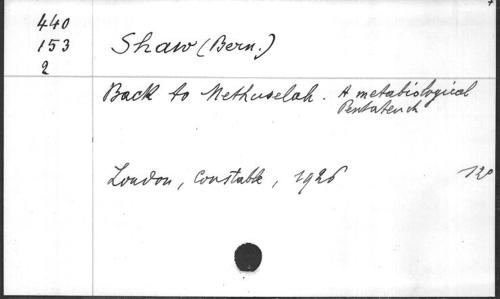 440
153
2
Shaw (Bern.)
Back to Methuselah. A metabiological
Pentateuch
London, Constable, 1926
120